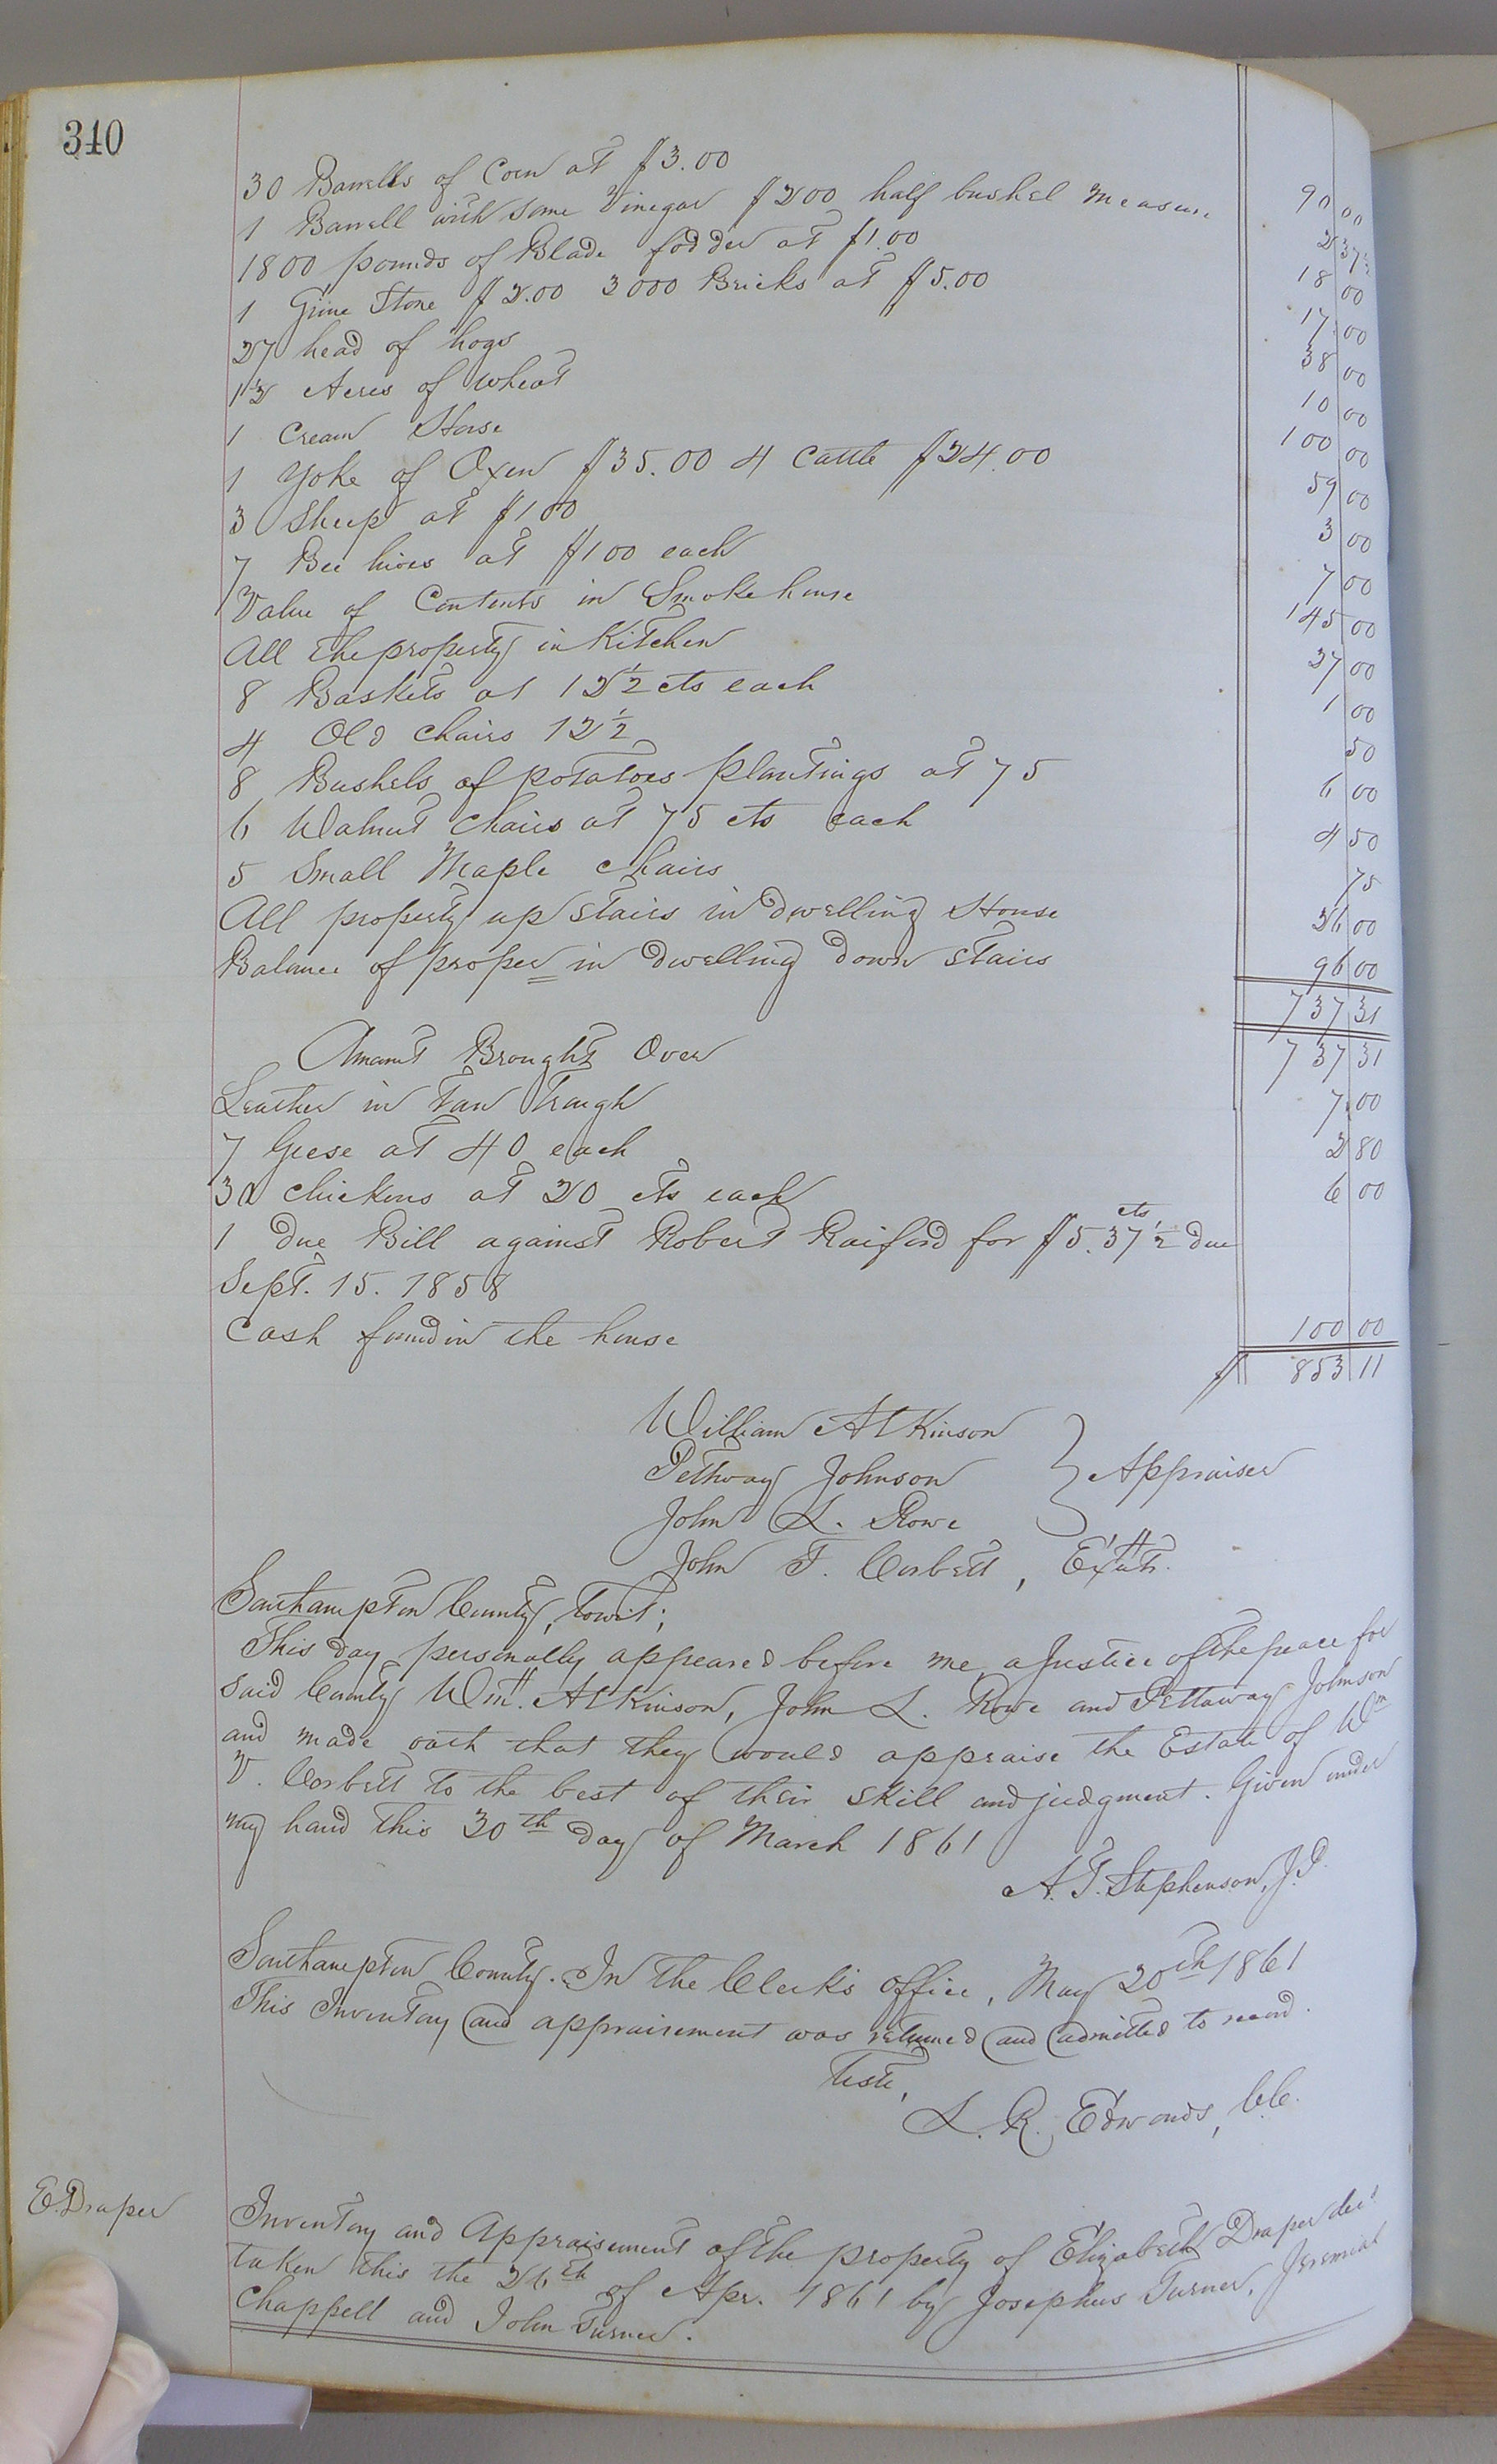 340
30 Barrells of Corn at $3.00 90 00
1 Barrell with some Vinegar $2.00 half bushel measure 2 37½
1800 pounds of Blade fodder at $1.00 18 00
1 Grine Stone $2.00 3000 Bricks at $5.00 17.00
27 head of hogs 38 00
1½ Acres of wheat 10 00
1 Cream Horse 100 00
1 Yoke of Oxen $35.00 4 Cattle $24.00 59 00
3 Sheep at $1.00 3 00
7 Bee hives at $1.00 each 7 00
Value of Contents in Smoke house 145 00
All the property in Kitchen 27 00
8 Baskets at 12½ cts each 1 00
4 Old chairs 12½ 50
8 Bushels of potatoes plantings at 75 6 00
6 Walnut chairs at 75 cts each 4 50
5 Small Maple chairs 75
All property up stairs in dwelling House 26 00
Balance of proper in dwelling down stairs 96 00
737 31
Amount Brought Over 737 31
Leather in Tan Trough 7.00
7 Geese at 40 each 2 80
30 chickens at 20 cts each 6 00
1 due Bill against Robert Raiford for $5.37½ cts due
Sept. 15. 1858
Cash found in the house 100 00
$ 853 11
William Atkinson
Pethway Johnson } Appraiser
John L. Rowe
John T. Corbett, Exutr.
Southampton County, towit;
This day personally appeared before me, a Justice of the peace for
said County Wm. Atkinson, John L. Rowe and Pettaway Johnson
and made oath that they would appraise the Estate of Wm
V. Corbett to the best of their skill and judgment. Given under
my hand this 30th day of March 1861
A. T. Stephenson, J.P.
Southampton County. In the Clerk's office, May 20th 1861
This Inventory and appraisement was returned and admitted to record.
Teste,
L. R. Edwards, C.C.
E. Draper
Inventory and Appraisement of the property of Elizabeth Draper decd
taken this the 26th of Apr. 1861 by Josephus Turner, Jeremiah
Chappell and John Turner.